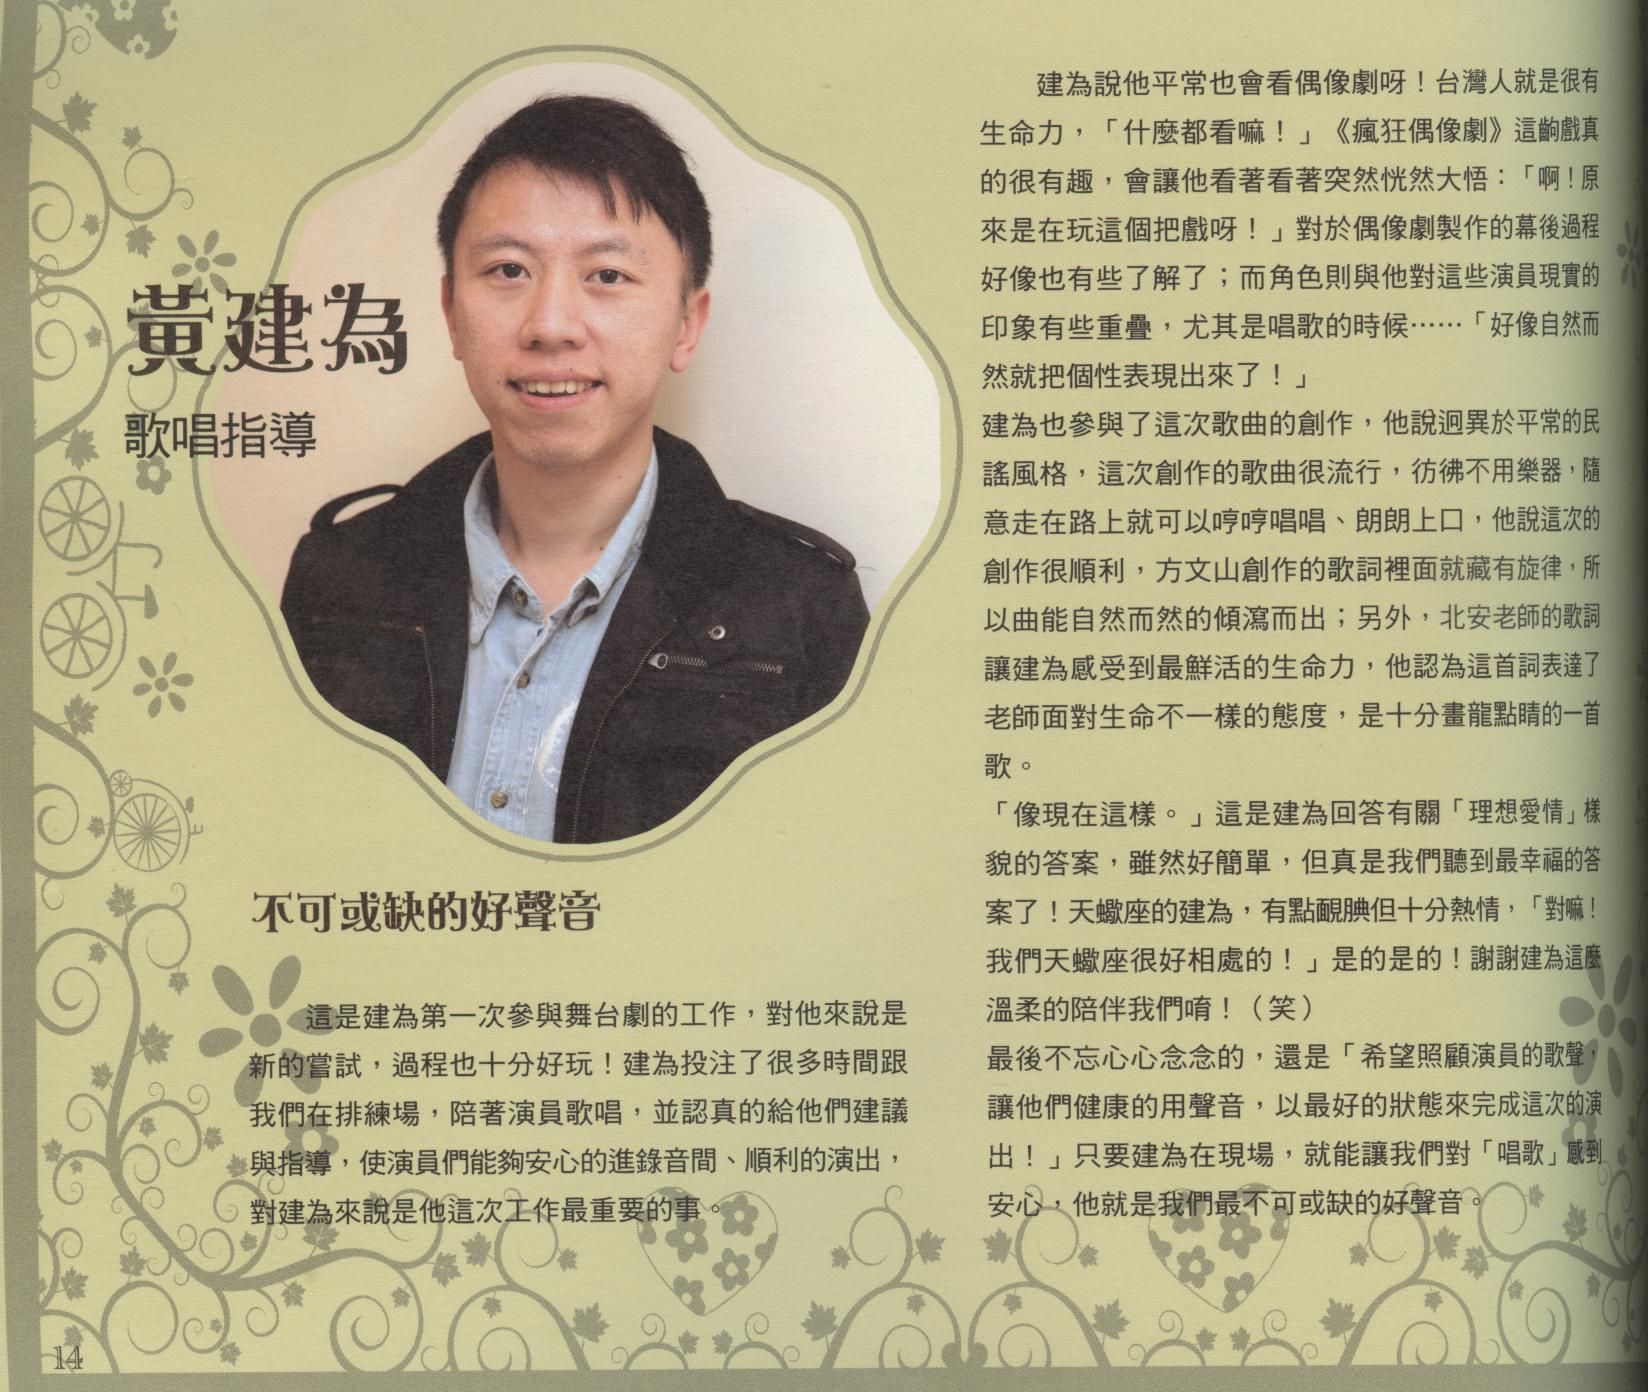 黃建為
歌唱指導
不可或缺的好聲音
這是建為第一次參與舞台劇的工作，對他來說是
新的嘗試，過程也十分好玩！建為投注了很多時間跟
我們在排練場，陪著演員歌唱，並認真的給他們建議
與指導，使演員們能夠安心的進錄音間、順利的演出，
對建為來說是他這次工作最重要的事。
建為說他平常也會看偶像劇呀！台灣人就是很有
生命力，「什麼都看嘛！」《瘋狂偶像劇》這齣戲真
的很有趣，會讓他看著看著突然恍然大悟：「啊！原
來是在玩這個把戲呀！」對於偶像劇製作的幕後過程
好像也有些了解了；而角色則與他對這些演員現實的
印象有些重疊，尤其是唱歌的時候……「好像自然而
然就把個性表現出來了！」
建為也參與了這次歌曲的創作，他說迥異於平常的民
謠風格，這次創作的歌曲很流行，彷彿不用樂器，隨
意走在路上就可以哼哼唱唱、朗朗上口，他說這次的
創作很順利，方文山創作的歌詞裡面就藏有旋律，所
以曲能自然而然的傾瀉而出；另外，北安老師的歌詞
讓建為感受到最鮮活的生命力，他認為這首詞表達了
老師面對生命不一樣的態度，是十分畫龍點睛的一首
歌。
「像現在這樣。」這是建為回答有關「理想愛情」樣
貌的答案，雖然好簡單，但真是我們聽到最幸福的答
案了！天蠍座的建為，有點靦腆但十分熱情，「對嘛！
我們天蠍座很好相處的！」是的是的！謝謝建為這麼
溫柔的陪伴我們唷！（笑）
最後不忘心心念念的，還是「希望照顧演員的歌聲，
讓他們健康的用聲音，以最好的狀態來完成這次的演
出！」只要建為在現場，就能讓我們對「唱歌」感到
安心，他就是我們最不可或缺的好聲音。
14